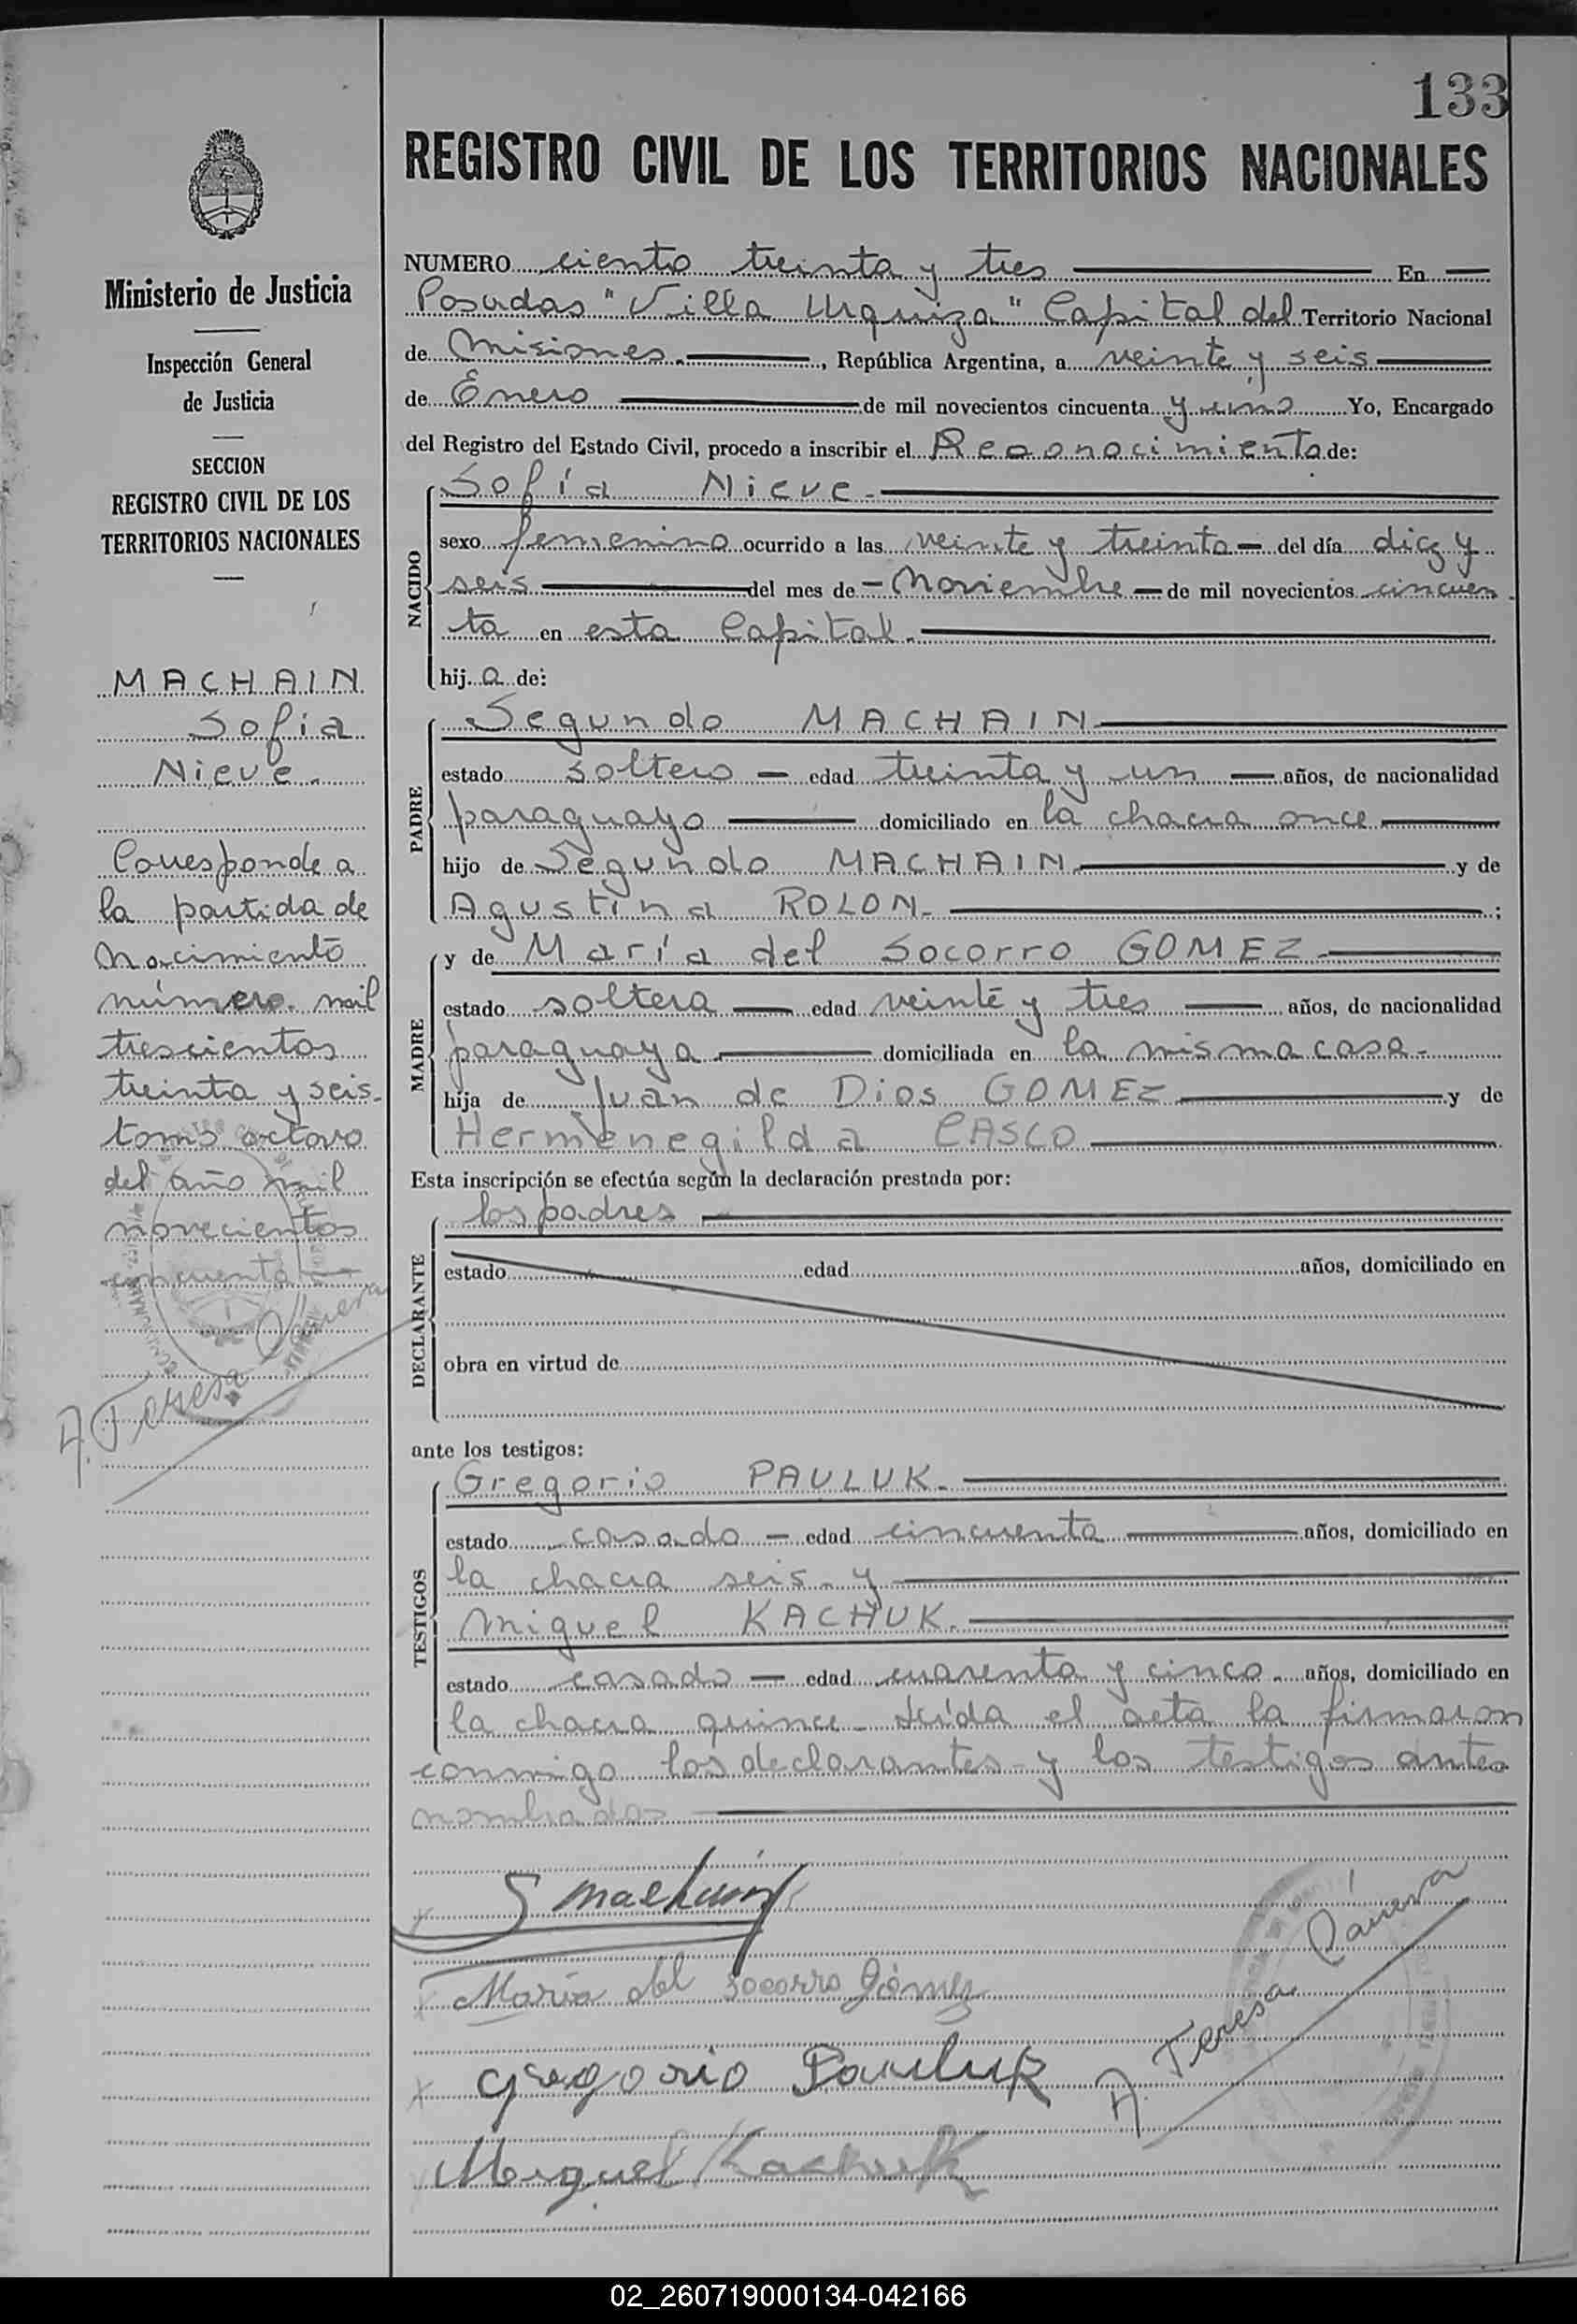 133
REGISTRO CIVIL DE LOS TERRITORIOS NACIONALES
Ministerio de Justicia
Inspección General
de Justicia
SECCION
REGISTRO CIVIL DE LOS
TERRITORIOS NACIONALES
MACHAIN
Sofía
Nieve.
Corresponde a
la partida de
nacimiento
número mil
trescientos
treinta y seis-
tomo octavo
del año mil
novecientos
cincuenta
A. Teresa
NUMERO ciento treinta y tres En
Posadas "Villa Urquiza" Capital del Territorio Nacional
de Misiones. , República Argentina, a veinte y seis
de Enero de mil novecientos cincuenta y uno Yo, Encargado
del Registro del Estado Civil, procedo a inscribir el Reconocimiento de:
NACIDO
Sofía Nieve.
sexo femenino ocurrido a las veinte y treinta del día diez y
seis del mes de Noviembre de mil novecientos cincuen
ta en esta Capital.
hija de:
PADRE
Segundo MACHAIN
estado soltero edad treinta y un años, de nacionalidad
paraguayo domiciliado en la chacra once
hijo de Segundo MACHAIN y de
Agustina ROLON. ;
MADRE
y de María del Socorro GOMEZ
estado soltera edad veinte y tres años, de nacionalidad
paraguaya domiciliada en la misma casa.
hija de Juan de Dios GOMEZ y de
Hermenegilda CASCO
Esta inscripción se efectúa según la declaración prestada por:
DECLARANTE
los padres
estado edad años, domiciliado en
obra en virtud de
ante los testigos:
TESTIGOS
Gregorio PAULUK.
estado casado edad cincuenta años, domiciliado en
la chacra seis y
Miguel KACHUK.
estado casado edad cuarenta y cinco años, domiciliado en
la chacra quince Leída el acta la firmaron
conmigo los declarantes y los testigos antes
nombrados
S Machain
María del Socorro Gómez
Gregorio Pauluk
A. Teresa
Miguel Kachuk
02_260719000134-042166